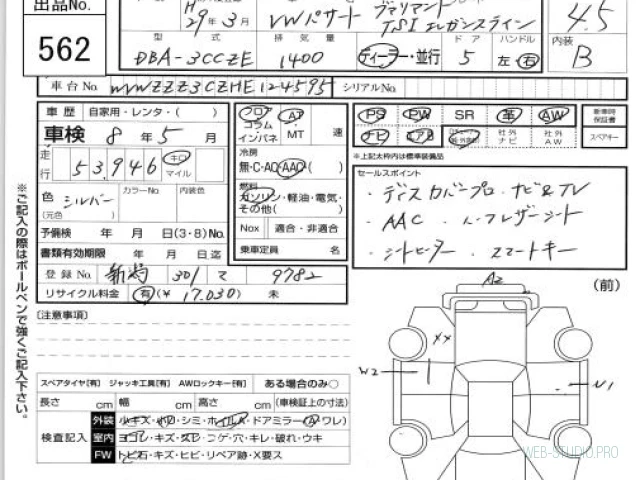 出品No.
562
H29年3月
VWパサート ヴァリアント
TSI エレガンスライン
4.5
型式 排気量 ドア ハンドル
内装
DBA-3CCZE 1400 ディーラー・並行 5 左・右
B
車台No. WVWZZZ3CZHE124595 シリアルNo.
車歴 自家用・レンタ・( )
車検 8年5月
走行 53,946 キロ マイル
色 シルバー (元色) カラーNo. 内装色
予備検 年 月 日(3・8)No.
書類有効期限 年 月 日迄
登録No. 新潟 301 て 9782
リサイクル料金 有(¥ 17.030) 未
フロア コラム インパネ AT MT 速
冷房
無・C・AC・AAC・( )
燃料
ガソリン・軽油・電気・その他( )
Nox 適合・非適合
乗車定員 名
PS PW SR 革 AW
ナビ エアB 社外ナビ 社外AW
新車時保証書
スペアキー
※上記太枠内は標準装備品
セールスポイント
・ディスカバープロ・ナビ&TV
・AAC ・ハーフレザーシート
・シートヒーター ・スマートキー
※ご記入の際はボールペンで強くご記入下さい。
[注意事項]
A2
(前)
XX
W2
U1
スペアタイヤ[有] ジャッキ工具[有] AWロックキー[有] ある場合のみ○
長さ cm 幅 cm 高さ cm (車検証上の寸法)
検査記入
外装 小キズ・小凹・シミ・ホイルA・ドアミラー(A・ワレ)
室内 ヨゴレ・キズ・スレ・コゲ・穴・キレ・破れ・ウキ
FW トビ石・キズ・ヒビ・リペア跡・X要ス
WEB-STUDIO.PRO